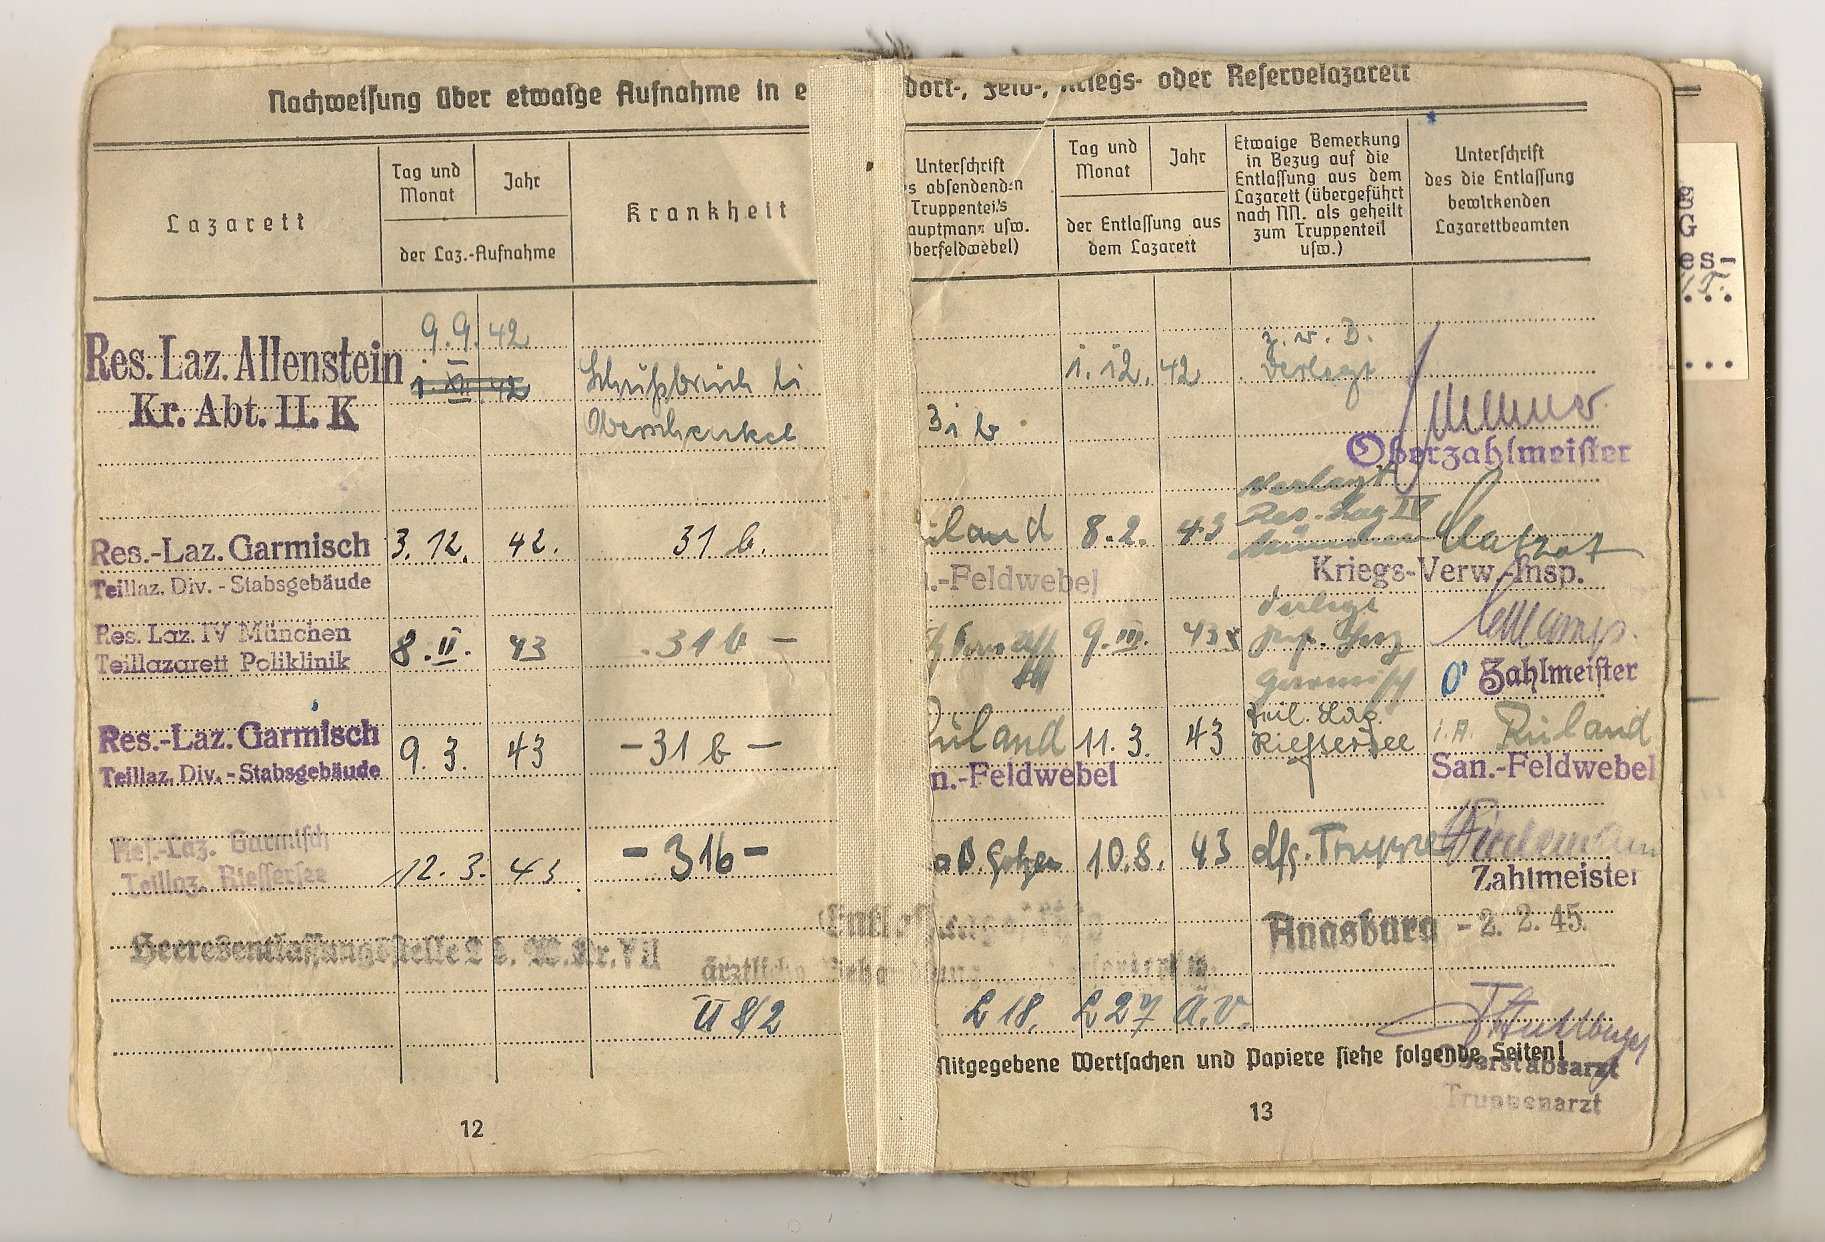 Nachweisung über etwaige Aufnahme in e dort-, Feld-, Kriegs- oder Reservelazarett
Lazarett
Tag und
Monat
Jahr
der Laz.-Aufnahme
Krankheit
Unterschrift
s absendenden
Truppenteils
auptmann usw.
berfeldwebel)
Tag und
Monat
Jahr
der Entlassung aus
dem Lazarett
Etwaige Bemerkung
in Bezug auf die
Entlassung aus dem
Lazarett (übergeführt
nach NN. als geheilt
zum Truppenteil
usw.)
Unterschrift
des die Entlassung
bewirkenden
Lazarettbeamten
Res. Laz. Allenstein
Kr. Abt. II. K
9.9. 42
1. XII 42
Schußbruch li
Oberschenkel
31 b
1. 12. 42
z. v. B.
verlegt
Oberzahlmeister
Res.-Laz. Garmisch
Teillaz. Div. - Stabsgebäude
3. 12. 42.
31 b.
iland
.-Feldwebel
8. 2. 43
verlegt
Res. Laz IV
München
Kriegs-Verw.-Insp.
Res. Laz. IV München
Teillazarett Poliklinik
8. II. 43
31 b —
9. III. 43
verlegt
Garmisch
Zahlmeister
Res.-Laz. Garmisch
Teillaz. Div. - Stabsgebäude
9. 3. 43
— 31 b —
Ruland
n.-Feldwebel
11. 3. 43
Teil. Laz.
Rießersee
i. A. Ruland
San.-Feldwebel
Res.-Laz. Garmisch
Teillaz. Riessersee
12. 3. 43.
— 31b —
10. 8. 43
dfg. Truppe
Zahlmeister
Heeresentlassungsstelle 2 d. W.Kr. VII
ärztliche
Augsburg - 2. 2. 45.
U 8/2
L 18. L 27 A. V.
Mitgegebene Wertsachen und Papiere siehe folgende Seiten!
Oberstabsarzt
Truppenarzt
12
13
G
es-